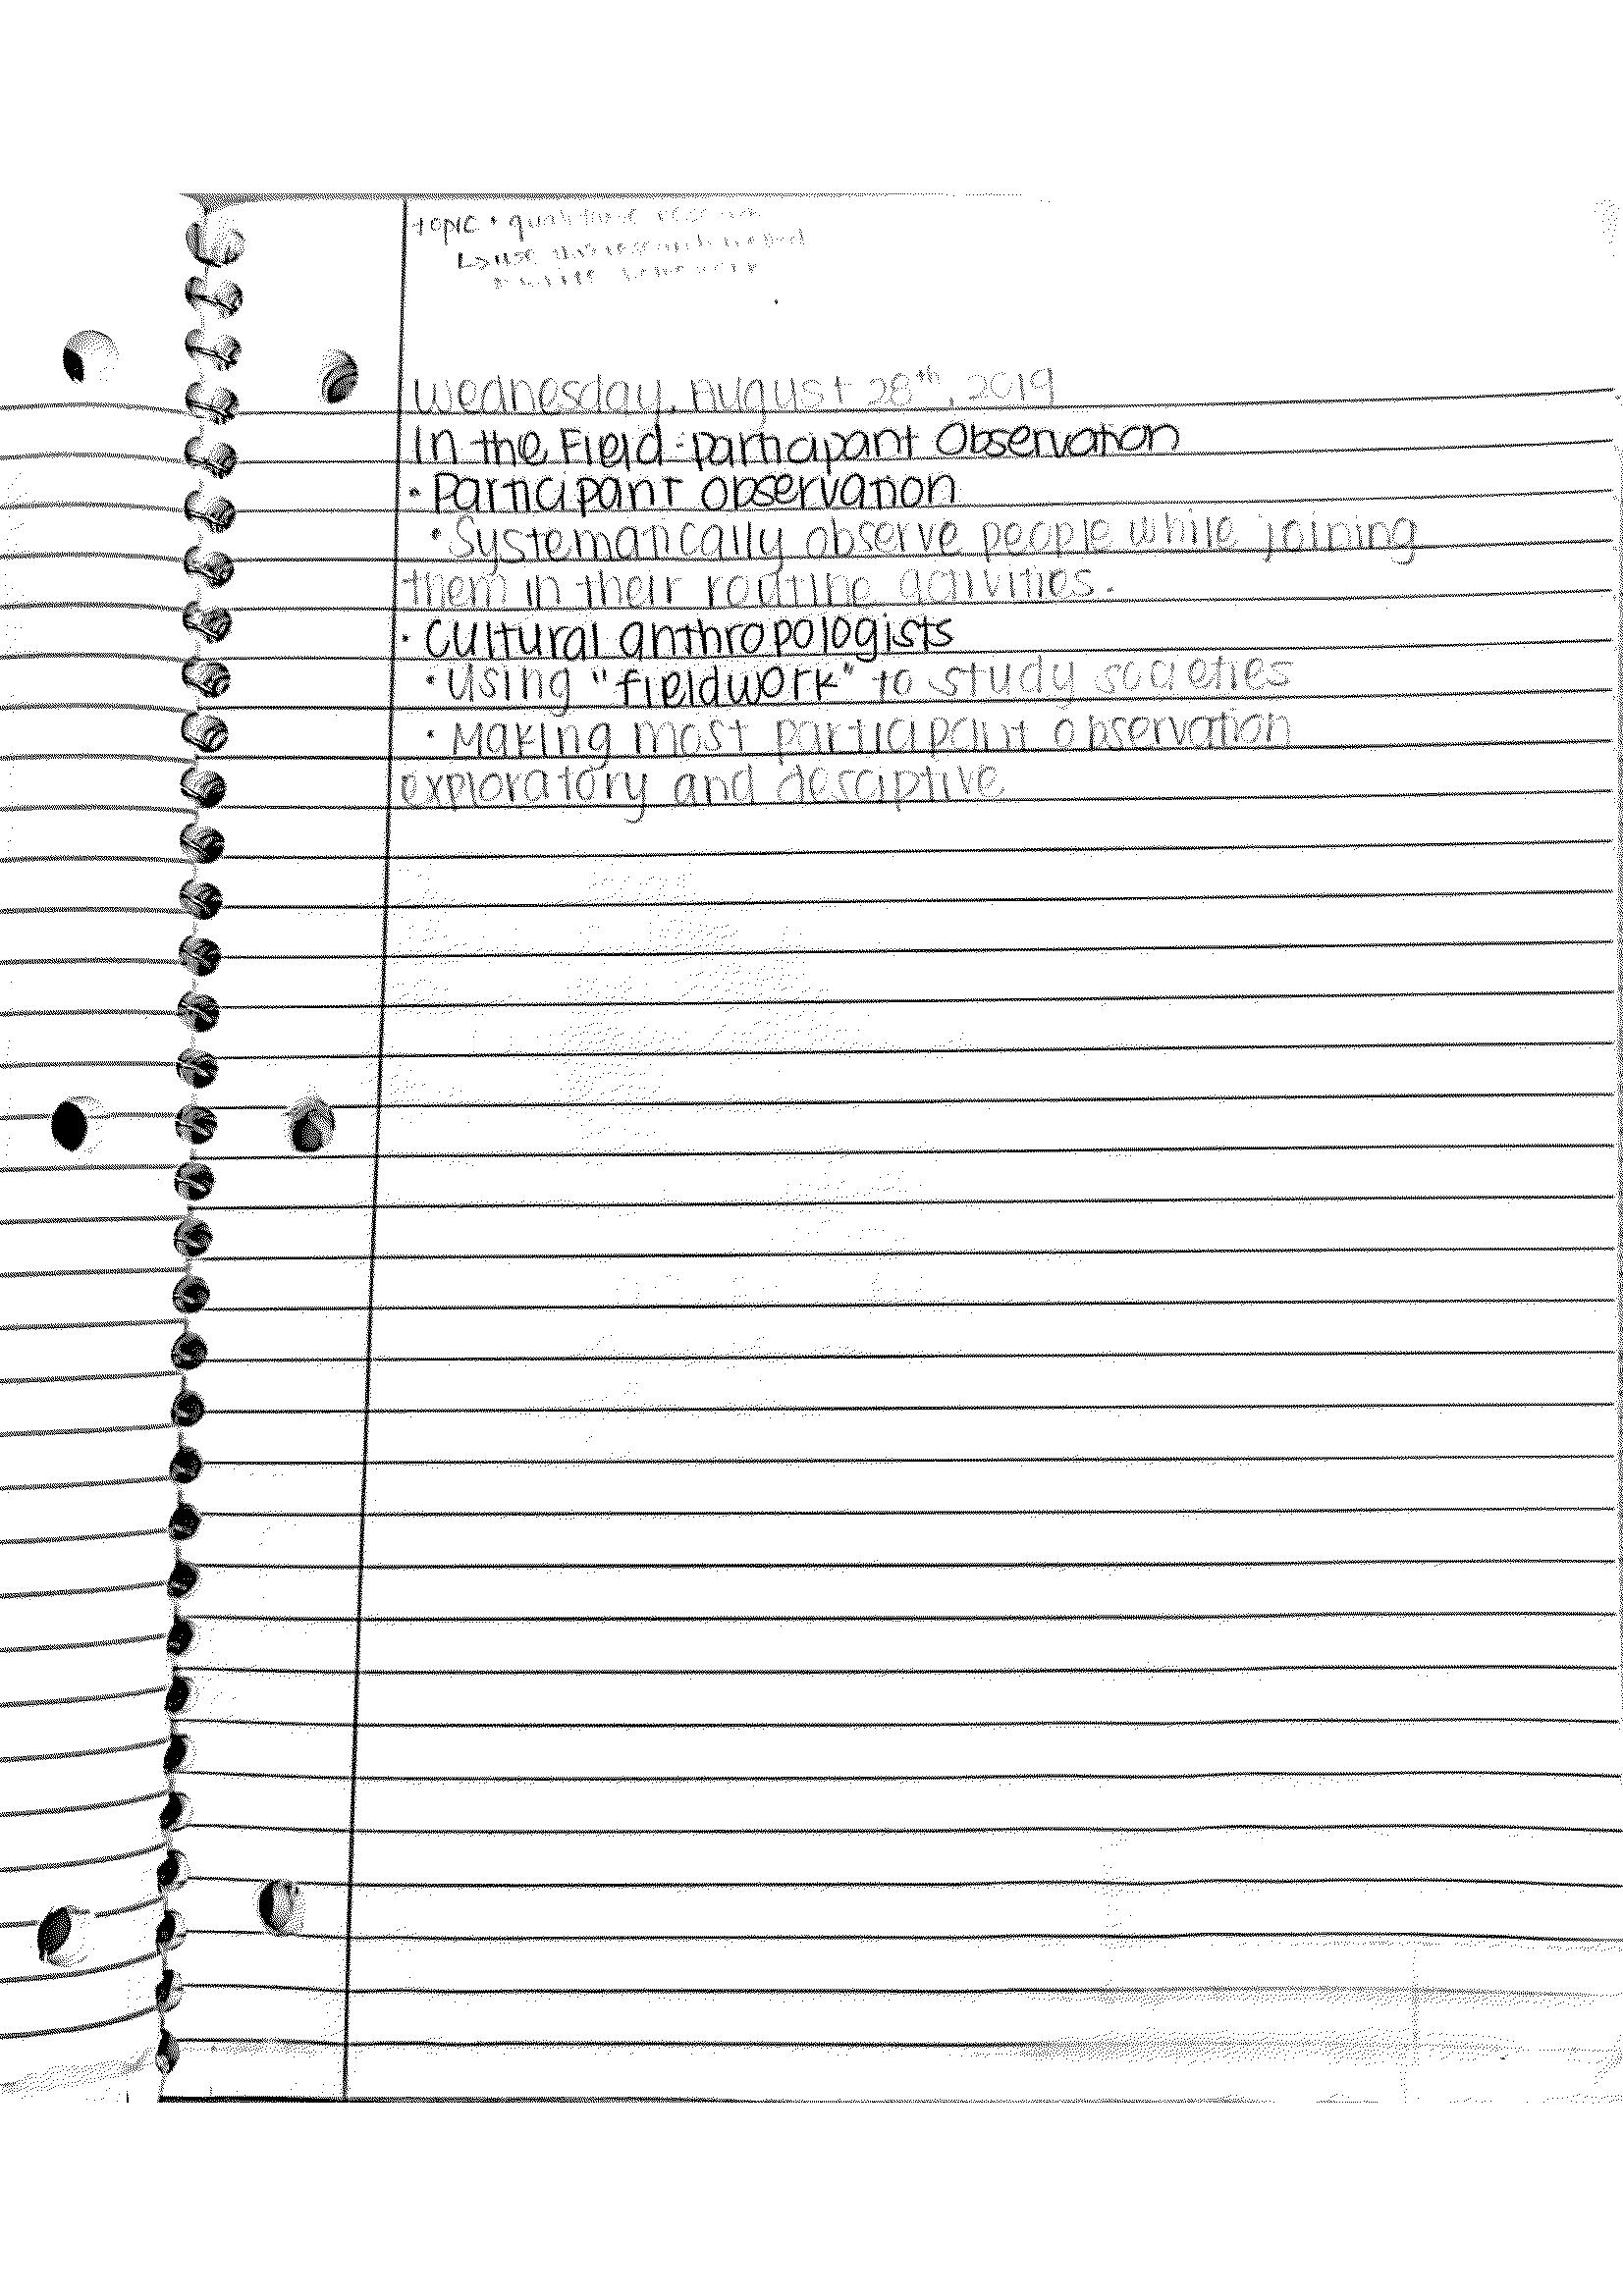 topic • qualitative research
↳ use this research method
homework
Wednesday, August 28th, 2019
In the Field - participant Observation
• Participant observation
• Systematically observe people while joining
them in their routine activities.
• Cultural anthropologists
• Using "fieldwork" to study societies
• Making most participant observation
exploratory and desciptive